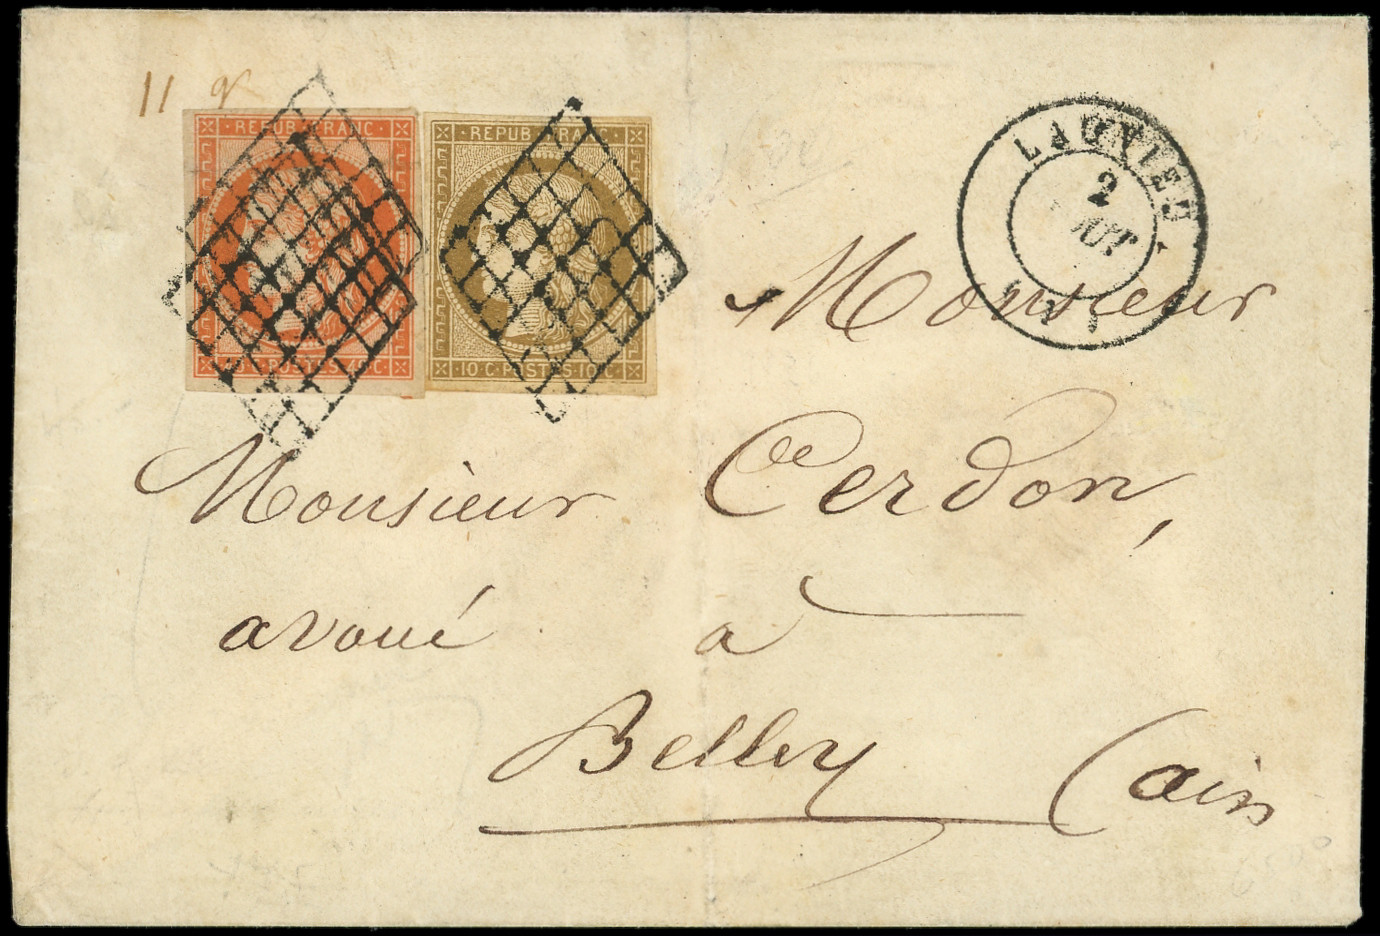 11 gr
REPUB FRANC
REPUB FRANC
10·C·POSTES·10·C
2
AOUT
Monsieur
Monsieur Cerdon,
avoué à
Belley (ain